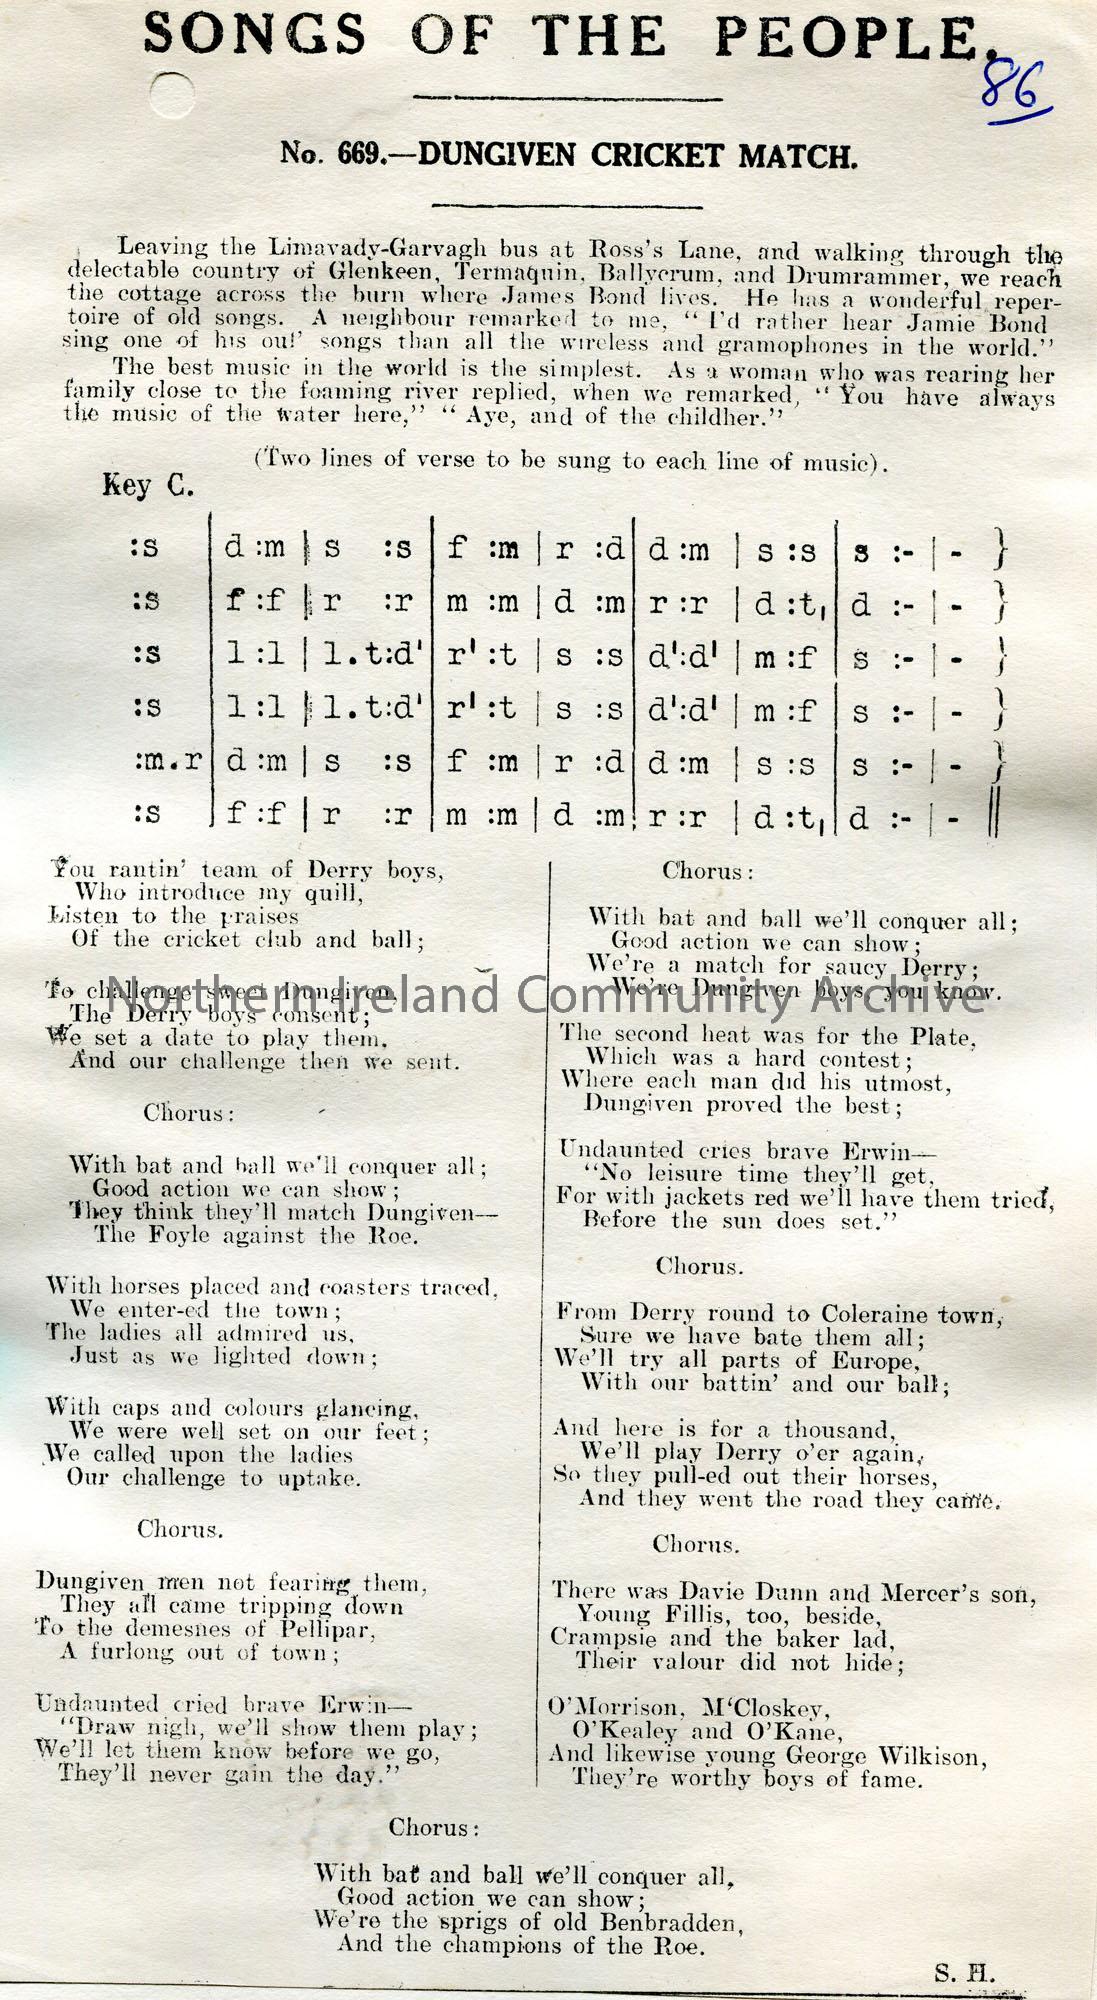 SONGS OF THE PEOPLE.
86
No. 669.—DUNGIVEN CRICKET MATCH.
Leaving the Limavady-Garvagh bus at Ross's Lane, and walking through the
delectable country of Glenkeen, Termaquin, Ballycrum, and Drumrammer, we reach
the cottage across the burn where James Bond lives. He has a wonderful reper-
toire of old songs. A neighbour remarked to me, "I'd rather hear Jamie Bond
sing one of his oul' songs than all the wireless and gramophones in the world."
The best music in the world is the simplest. As a woman who was rearing her
family close to the foaming river replied, when we remarked, "You have always
the music of the water here," "Aye, and of the childher."
(Two lines of verse to be sung to each line of music).
Key C.
:s | d :m | s :s | f :m | r :d | d :m | s :s | s :- | - }
:s | f :f | r :r | m :m | d :m | r :r | d :t, | d :- | - }
:s | l :l | l.t:d' | r' :t | s :s | d':d' | m :f | s :- | - }
:s | l :l | l.t:d' | r' :t | s :s | d':d' | m :f | s :- | - }
:m.r | d :m | s :s | f :m | r :d | d :m | s :s | s :- | - }
:s | f :f | r :r | m :m | d :m | r :r | d :t, | d :- | - ||
You rantin' team of Derry boys,
Who introduce my quill,
Listen to the praises
Of the cricket club and ball;
To challenge sweet Dungiven,
The Derry boys consent;
We set a date to play them,
And our challenge then we sent.
Chorus:
With bat and ball we'll conquer all;
Good action we can show;
They think they'll match Dungiven—
The Foyle against the Roe.
With horses placed and coasters traced,
We enter-ed the town;
The ladies all admired us,
Just as we lighted down;
With caps and colours glancing,
We were well set on our feet;
We called upon the ladies
Our challenge to uptake.
Chorus.
Dungiven men not fearing them,
They all came tripping down
To the demesnes of Pellipar,
A furlong out of town;
Undaunted cried brave Erwin—
"Draw nigh, we'll show them play;
We'll let them know before we go,
They'll never gain the day."
Chorus:
With bat and ball we'll conquer all;
Good action we can show;
We're a match for saucy Derry;
We're Dungiven boys, you know.
The second heat was for the Plate,
Which was a hard contest;
Where each man did his utmost,
Dungiven proved the best;
Undaunted cries brave Erwin—
"No leisure time they'll get,
For with jackets red we'll have them tried,
Before the sun does set."
Chorus.
From Derry round to Coleraine town,
Sure we have bate them all;
We'll try all parts of Europe,
With our battin' and our ball;
And here is for a thousand,
We'll play Derry o'er again,
So they pull-ed out their horses,
And they went the road they came.
Chorus.
There was Davie Dunn and Mercer's son,
Young Fillis, too, beside,
Crampsie and the baker lad,
Their valour did not hide;
O'Morrison, M'Closkey,
O'Kealey and O'Kane,
And likewise young George Wilkison,
They're worthy boys of fame.
Chorus:
With bat and ball we'll conquer all,
Good action we can show;
We're the sprigs of old Benbradden,
And the champions of the Roe.
S. H.
Northern Ireland Community Archive